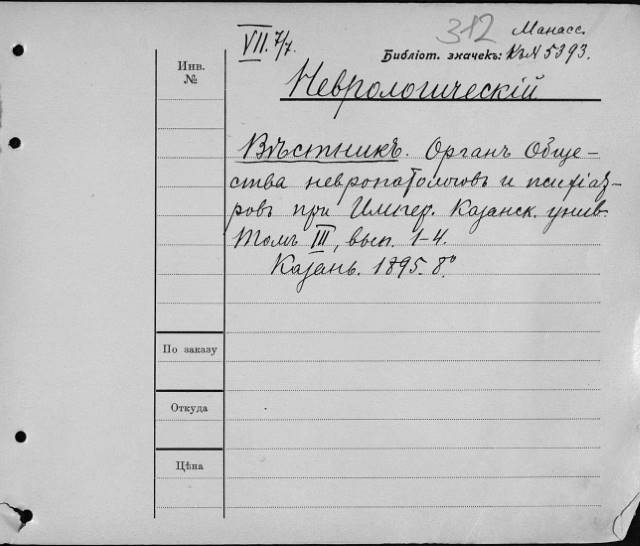 312 Манасс.
VII. 7/7.
Библіот. значекъ: Къ № 5393.
Инв.
№
Неврологическій
Вѣстникъ. Органъ Обще-
ства невропатологовъ и психіат-
ровъ при Импер. Казанск. унив.
Томъ III, вып. 1-4.
Казань. 1895. 8°
По заказу
Откуда
Цѣна